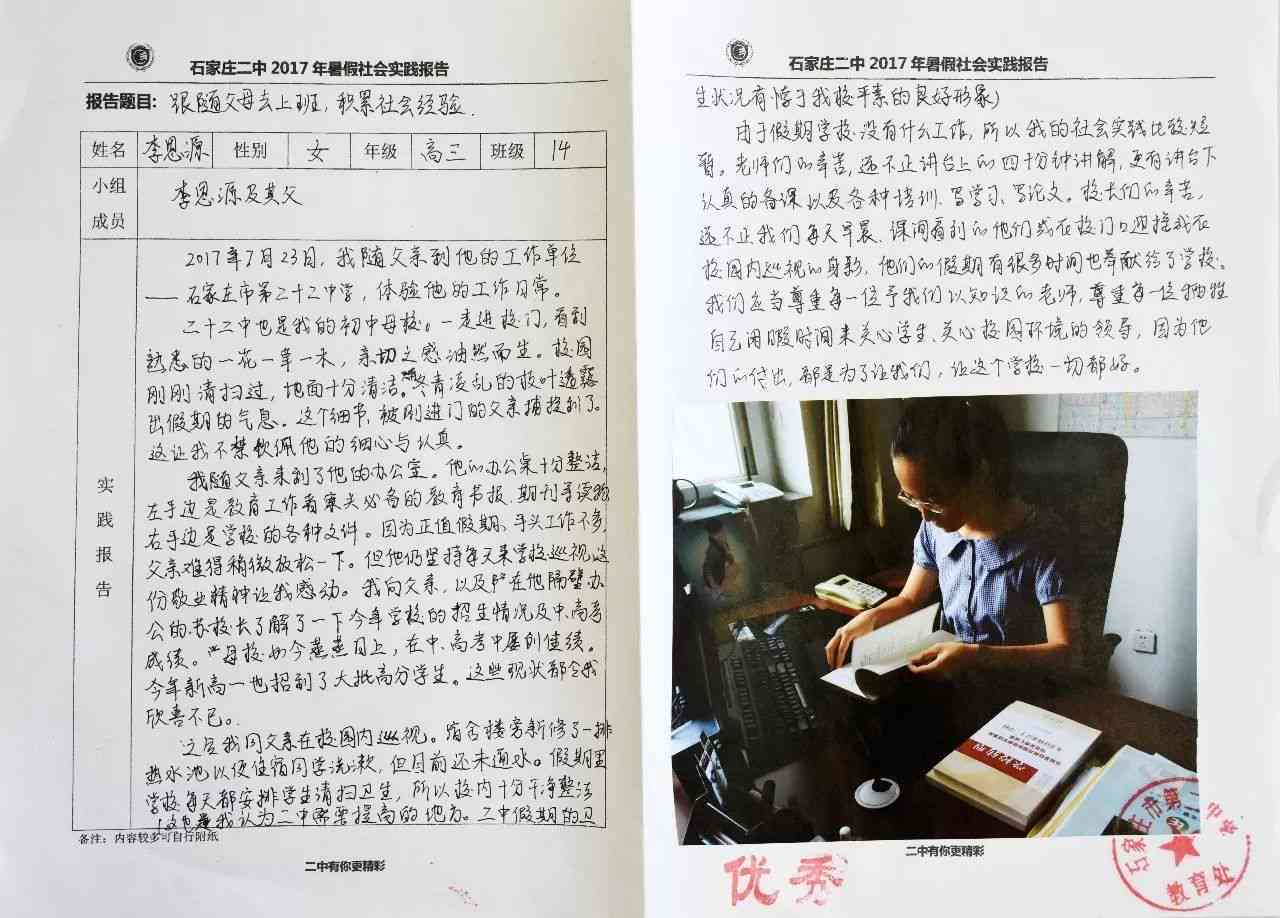 石家庄二中 2017 年暑假社会实践报告
报告题目：跟随父母去上班，积累社会经验.
姓名 李思源 性别 女 年级 高三 班级 14
小组
成员
李思源及其父
实践报告
2017年7月23日，我随父亲到他的工作单位
——石家庄市第二十二中学，体验他的工作日常。
二十二中也是我的初中母校。一走进校门，看到
熟悉的一花一草一木，亲切之感油然而生。校园
刚刚清扫过，地面十分清洁。冬青凌乱的枝叶透露
出假期的气息。这个细节，被刚进门的父亲捕捉到了。
这让我不禁钦佩他的细心与认真。
我随父亲来到了他的办公室。他的办公桌十分整洁，
左手边是教育工作者案头必备的教育书报、期刊等读物，
右手边是学校的各种文件。因为正值假期，手头工作不多，
父亲难得稍微放松一下。但他仍坚持每天来学校巡视，这
份敬业精神让我感动。我向父亲，以及在他隔壁办
公的苏校长了解了一下今年学校的招生情况及中、高考
成绩。母校如今蒸蒸日上，在中、高考中屡创佳绩。
今年新高一也招到了大批高分学生。这些现状都令我
欣喜不已。
之后我同父亲在校园内巡视。宿舍楼旁新修了一排
热水池以便住宿同学洗漱，但目前还未通水。假期里
学校每天都安排学生清扫卫生，所以校内十分干净整洁
（这也是我认为二中需要提高的地方。二中假期的卫
备注：内容较多可自行附纸
二中有你更精彩
石家庄二中 2017 年暑假社会实践报告
生状况有悖于我校平素的良好形象）
由于假期学校没有什么工作，所以我的社会实践比较短
暂。老师们的辛苦，还不止讲台上的四十分钟讲解，更有讲台下
认真的备课以及各种培训、写学习、写论文。校长们的辛苦，
还不止我们每天早晨、课间看到的他们或在校门口迎接或在
校园内巡视的身影，他们的假期有很多时间也奉献给了学校。
我们应当尊重每一位予我们以知识的老师，尊重每一位牺牲
自己闲暇时间来关心学生、关心校园环境的领导，因为他
们的付出，都是为了让我们，让这个学校一切都好。
学校转型
二中有你更精彩
优秀
石家庄市第二
教育处